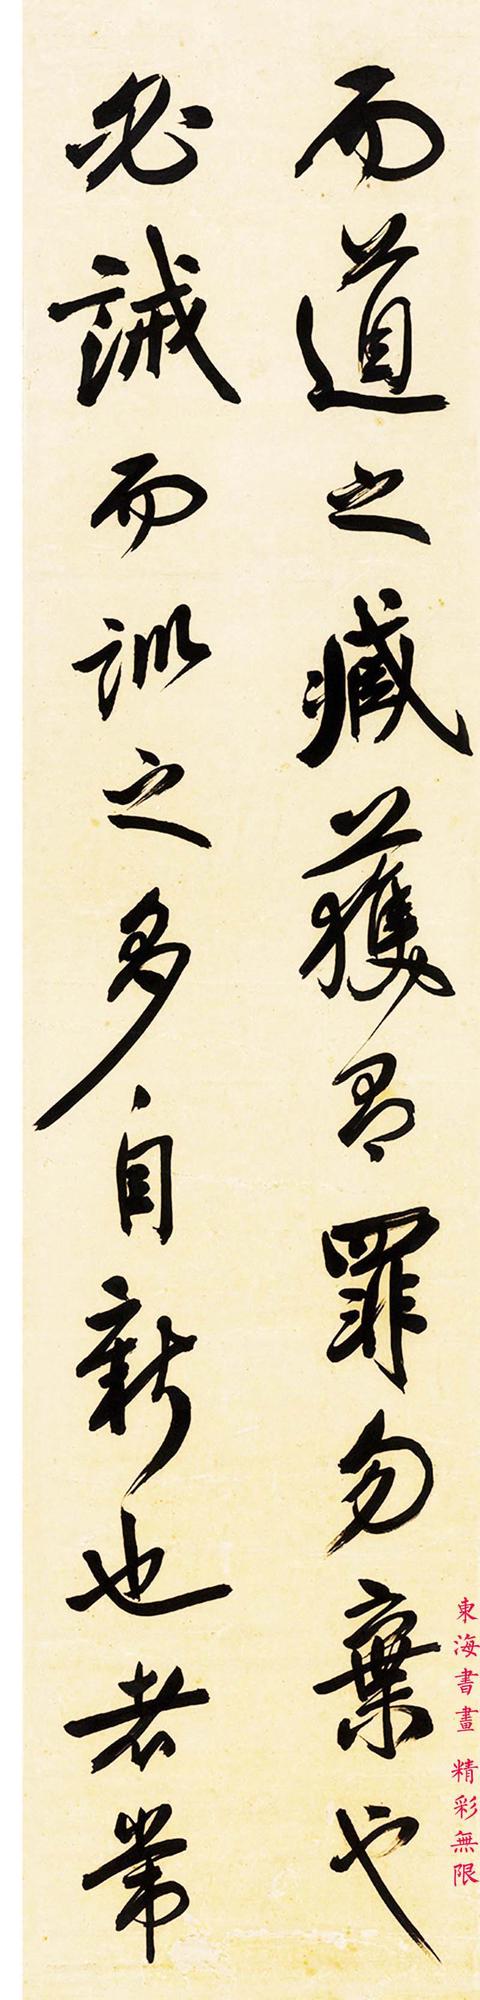 而道之臧獲有罪勿棄也
必誡而訓之多自新也者常
東海書畫 精彩無限